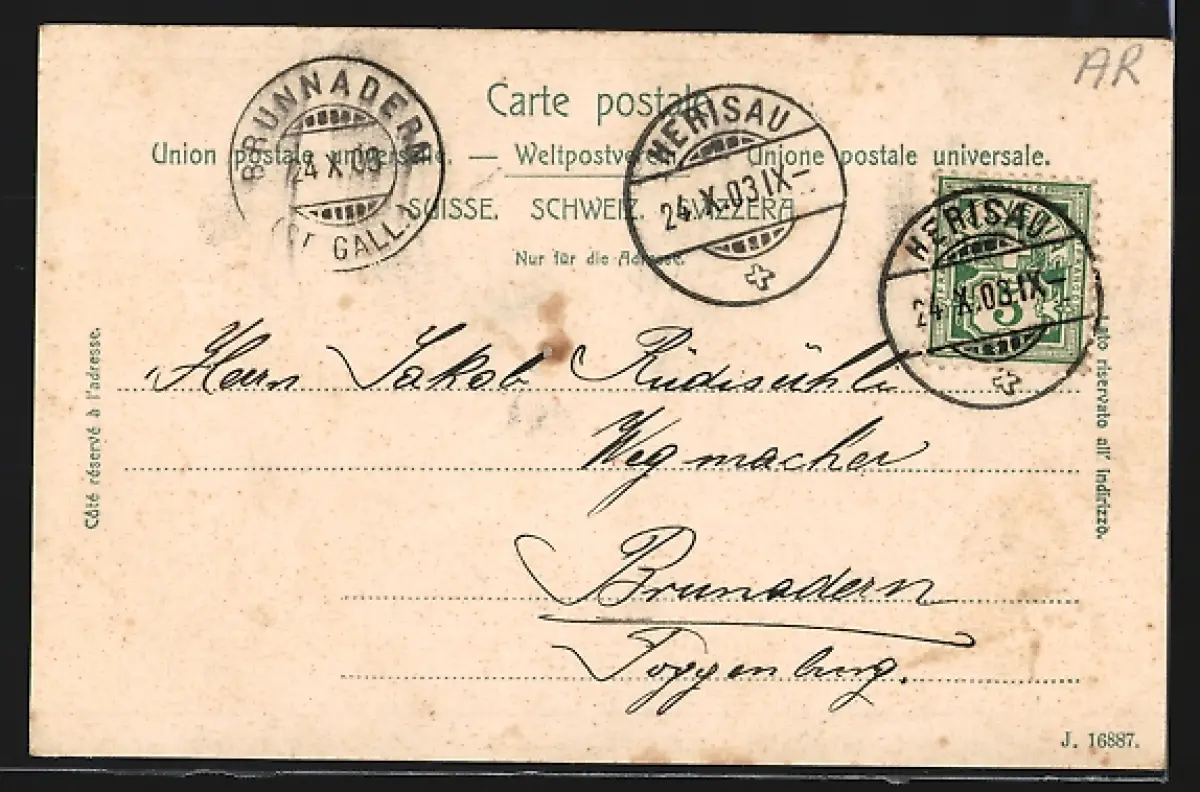 AR
Carte postale
Union postale universelle. — Weltpostverein — Unione postale universale.
SUISSE. SCHWEIZ. SVIZZERA.
Nur für die Adresse.
BRUNNADERN
24 X 03
(ST GALL.)
HERISAU
24.X.03 IX–
HERISAU
24.X.03 IX–
5
Herrn Jakob Rüdisühli
Wegmacher
Brunadern
Toggenburg.
Côté réservé à l'adresse.
Lato riservato all' indirizzo.
J. 16887.